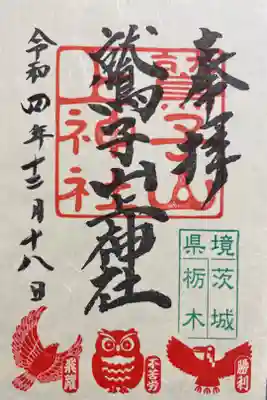 奉拝
鷲子山上神社
鷲子山
上神社
令和四年十二月十八日
境茨城
県栃木
勝利
不苦労
飛躍